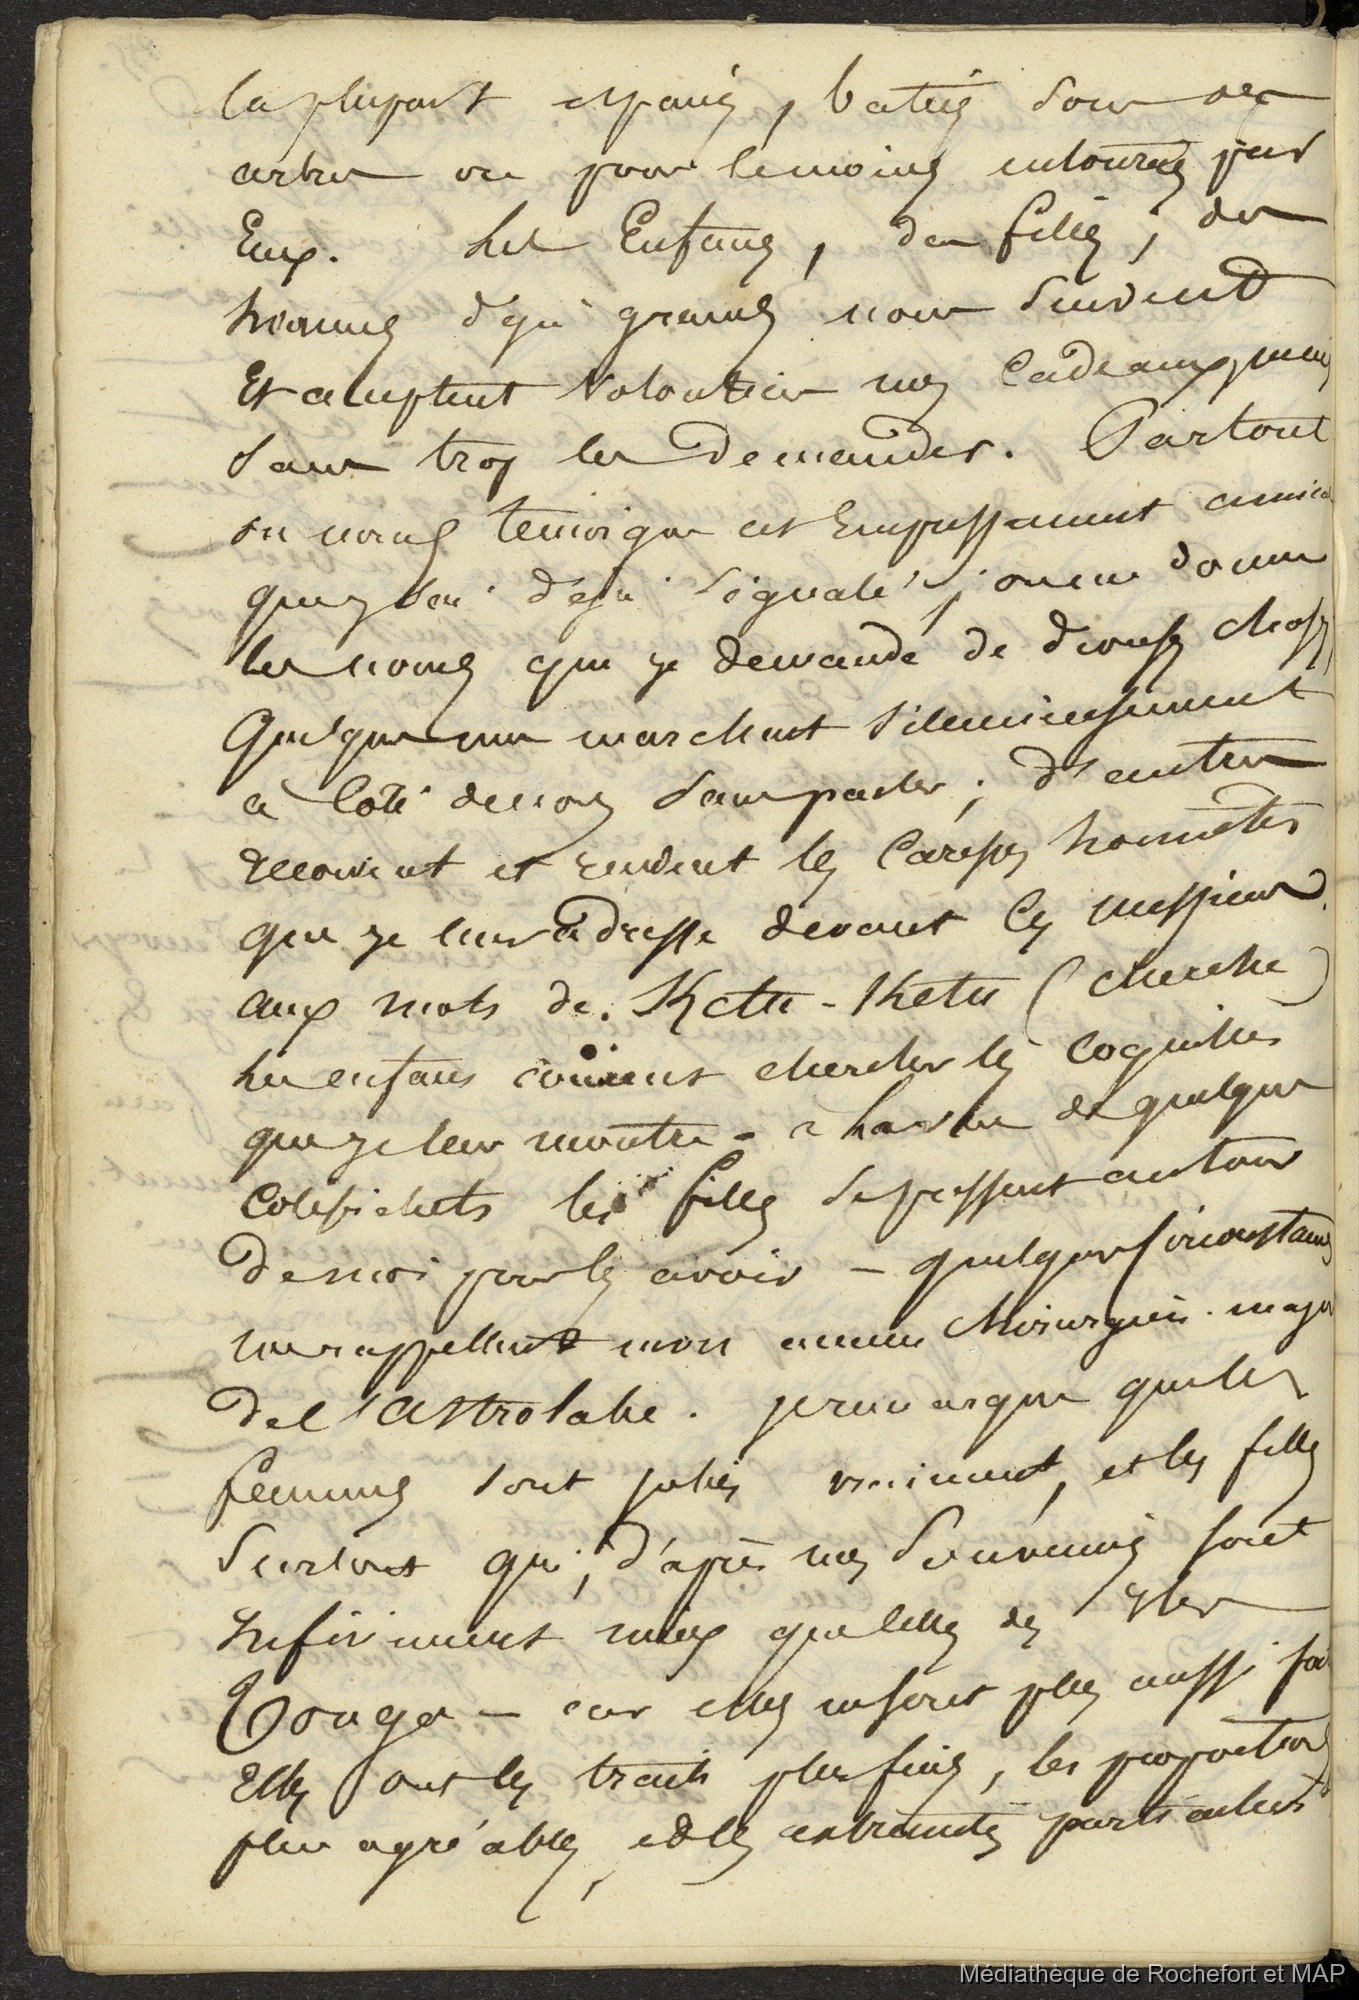 la plupart epars, batis sous des
arbres ou pour le moins entourés par
Eux. Les Enfans, des filles, des
hommes deja grands nous suivent
Et acceptent volontiers nos Cadeaux, mais
sans trop les demander. Partout
on nous temoigne cet Empressement amical
que j'ai deja signalé; on me donne
les noms que je demande de diverses choses,
Quelques uns marchent silencieusement
a coté de nous sans parler; d'autres
recoivent et rendent les caresses honnêtes
que je leur adresse devant ces messieurs.
aux mots de Ketu-Ketu (cherche)
les enfans courent chercher les coquilles
que je leur montre - de quelques
colifichets les filles se pressent autour
de moi pour les avoir - quelques circonstances
me rappellent mon ancien chirurgien major
de l'Astrolabe. je remarque que les
femmes sont jolies vraiment, et les filles
surtout qui, d'après mes souvenirs sont
infiniment mieux que celles des Isles
Tonga - car elles ne sont plus aussi
Elles ont les traits plus fins, les proportions
plus agréables, et les extremités